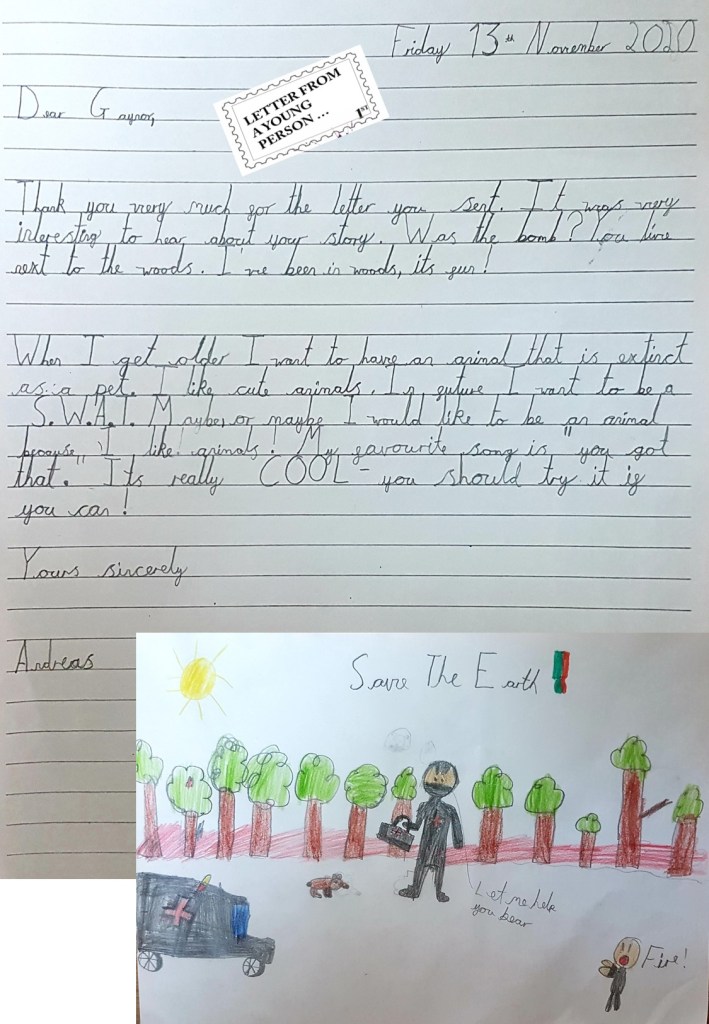 Friday 13th November 2020
LETTER FROM
A YOUNG
PERSON ...
1ST
Dear Gaynor,
Thank you very much for the letter you sent. It was very
interesting to hear about your story. Was the bomb? You live
next to the woods. I've been in woods, its fun!
When I get older I want to have an animal that is extinct
as a pet. I like cute animals. In future I want to be a
S.W.A.T. Maybe, or maybe I would like to be an animal
because I like animals! My favourite song is "you got
that." Its really COOL - you should try it if
you can!
Yours sincerely
Andreas
Save The Earth
Let me help
you bear
Fire!